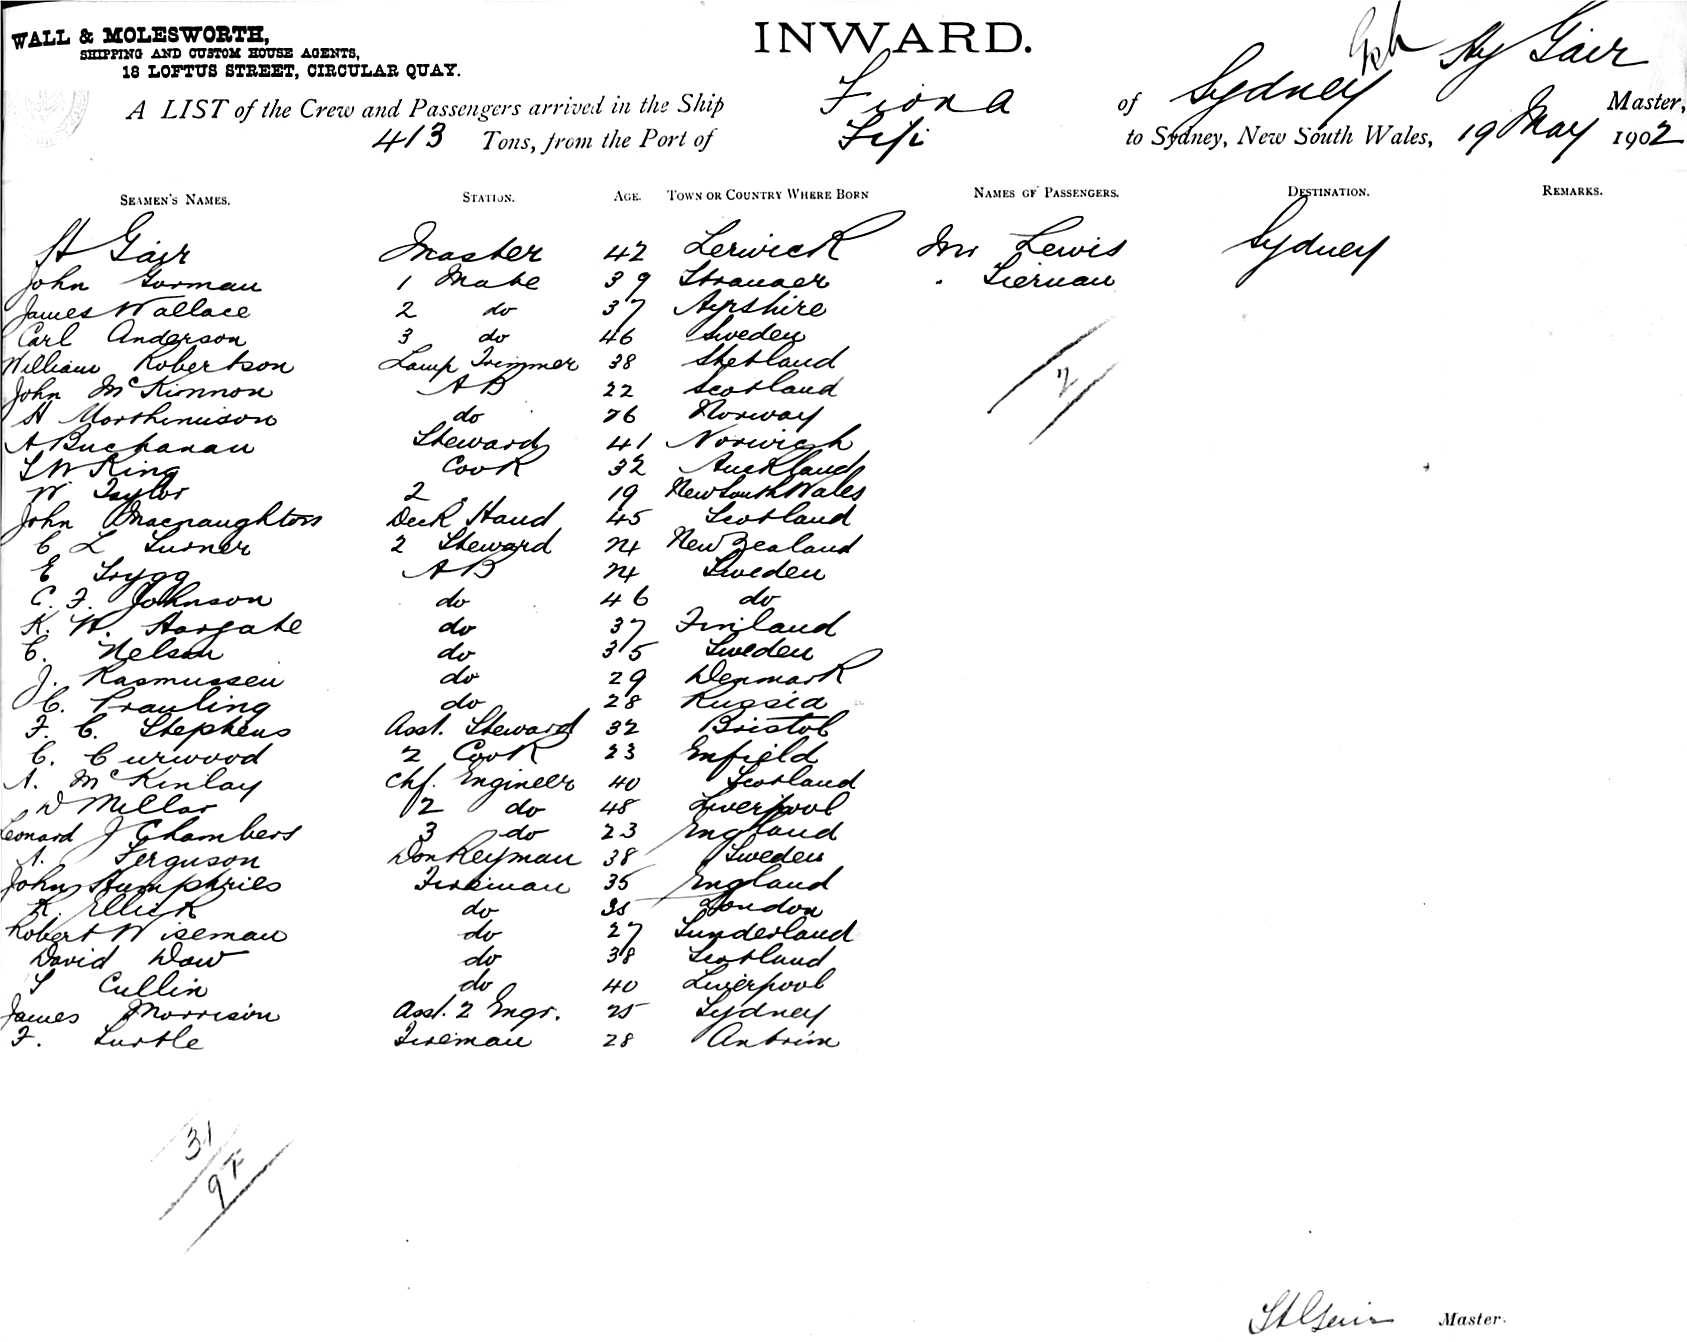 WALL & MOLESWORTH,
SHIPPING AND CUSTOM HOUSE AGENTS,
18 LOFTUS STREET, CIRCULAR QUAY.
INWARD.
A LIST of the Crew and Passengers arrived in the Ship Fiona of Sydney Hy Gair Master,
413 Tons, from the Port of Fiji to Sydney, New South Wales, 19 May 1902
SEAMEN'S NAMES. STATION. AGE. TOWN OR COUNTRY WHERE BORN NAMES OF PASSENGERS. DESTINATION. REMARKS.
H Gair Master 42 Lerwick Mr Lewis Sydney
John Gorman 1 Mate 39 Stranaer " Tiernan
James Wallace 2 do 37 Ayrshire
Carl Anderson 3 do 46 Sweden
William Robertson Lamp Trimmer 38 Shetland
John McKinnon AB 22 Scotland
H Marthinuison do 26 Norway
A Buchanan Steward 41 Norwich
T W King Cook 32 Auckland
W Taylor 2 " 19 New South Wales
John Macnaughton Deck Hand 45 Scotland
C L Turner 2 Steward 24 New Zealand
E Trygg AB 24 Sweden
C. F. Johnson do 46 do
K. W. Hargate do 37 Finland
C. Nelson do 35 Sweden
J. Rasmussen do 29 Denmark
C. Prauling do 28 Russia
F. C. Stephens Asst. Steward 32 Bristol
C. Curwood 2 Cook 23 Enfield
A. McKinlay Chf. Engineer 40 Scotland
D Millar 2 do 48 Liverpool
Leonard J Chambers 3 do 23 England
A. Ferguson Donkeyman 38 Sweden
John Humphries Fireman 35 England
R. Ellick do 35 London
Robert Wiseman do 27 Sunderland
David Daw do 38 Scotland
T Cullin do 40 Liverpool
James Morrison Asst. 2 Engr. 25 Sydney
F. Turtle Fireman 28 Antrim
2
31
97
H Gair Master.